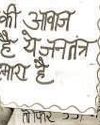 की आवाज
है ये जनतंत्र
हमारा है